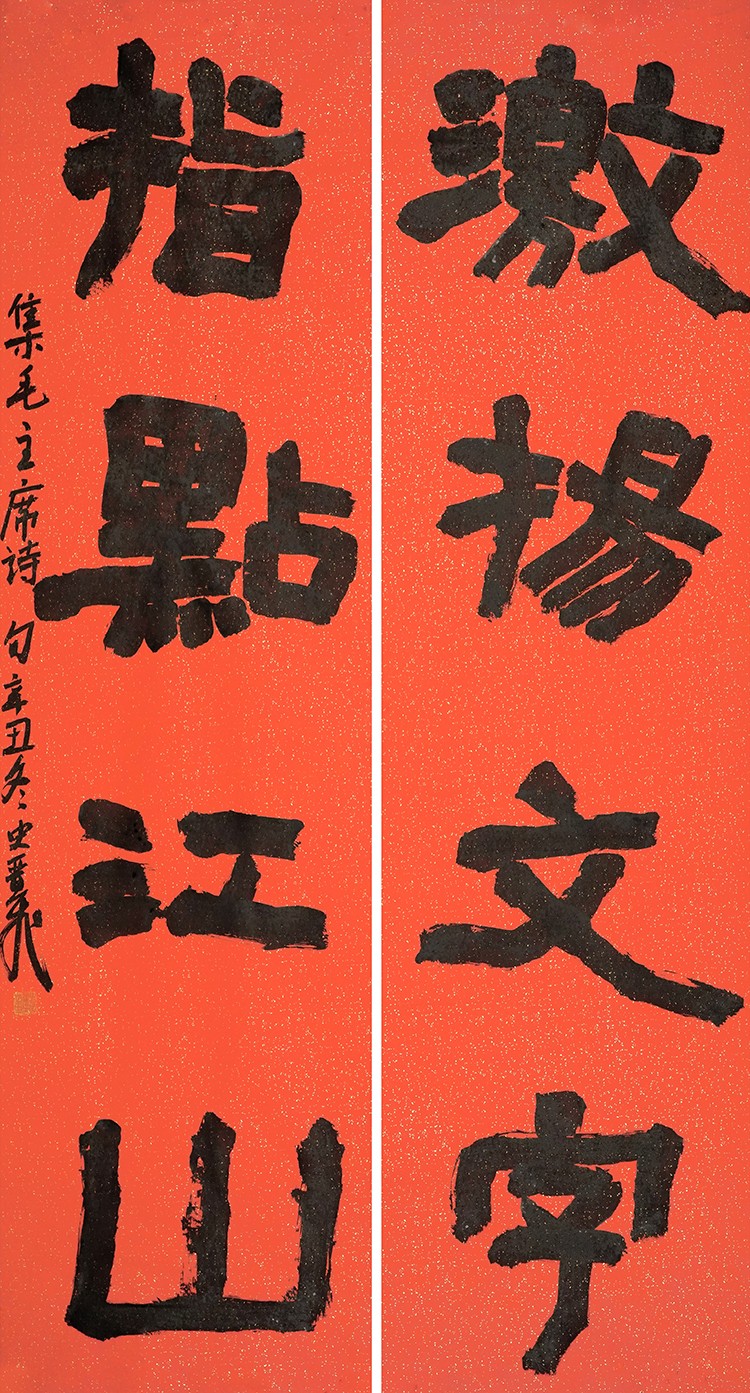 激揚文字
指點江山
集毛主席诗句辛丑冬史晋